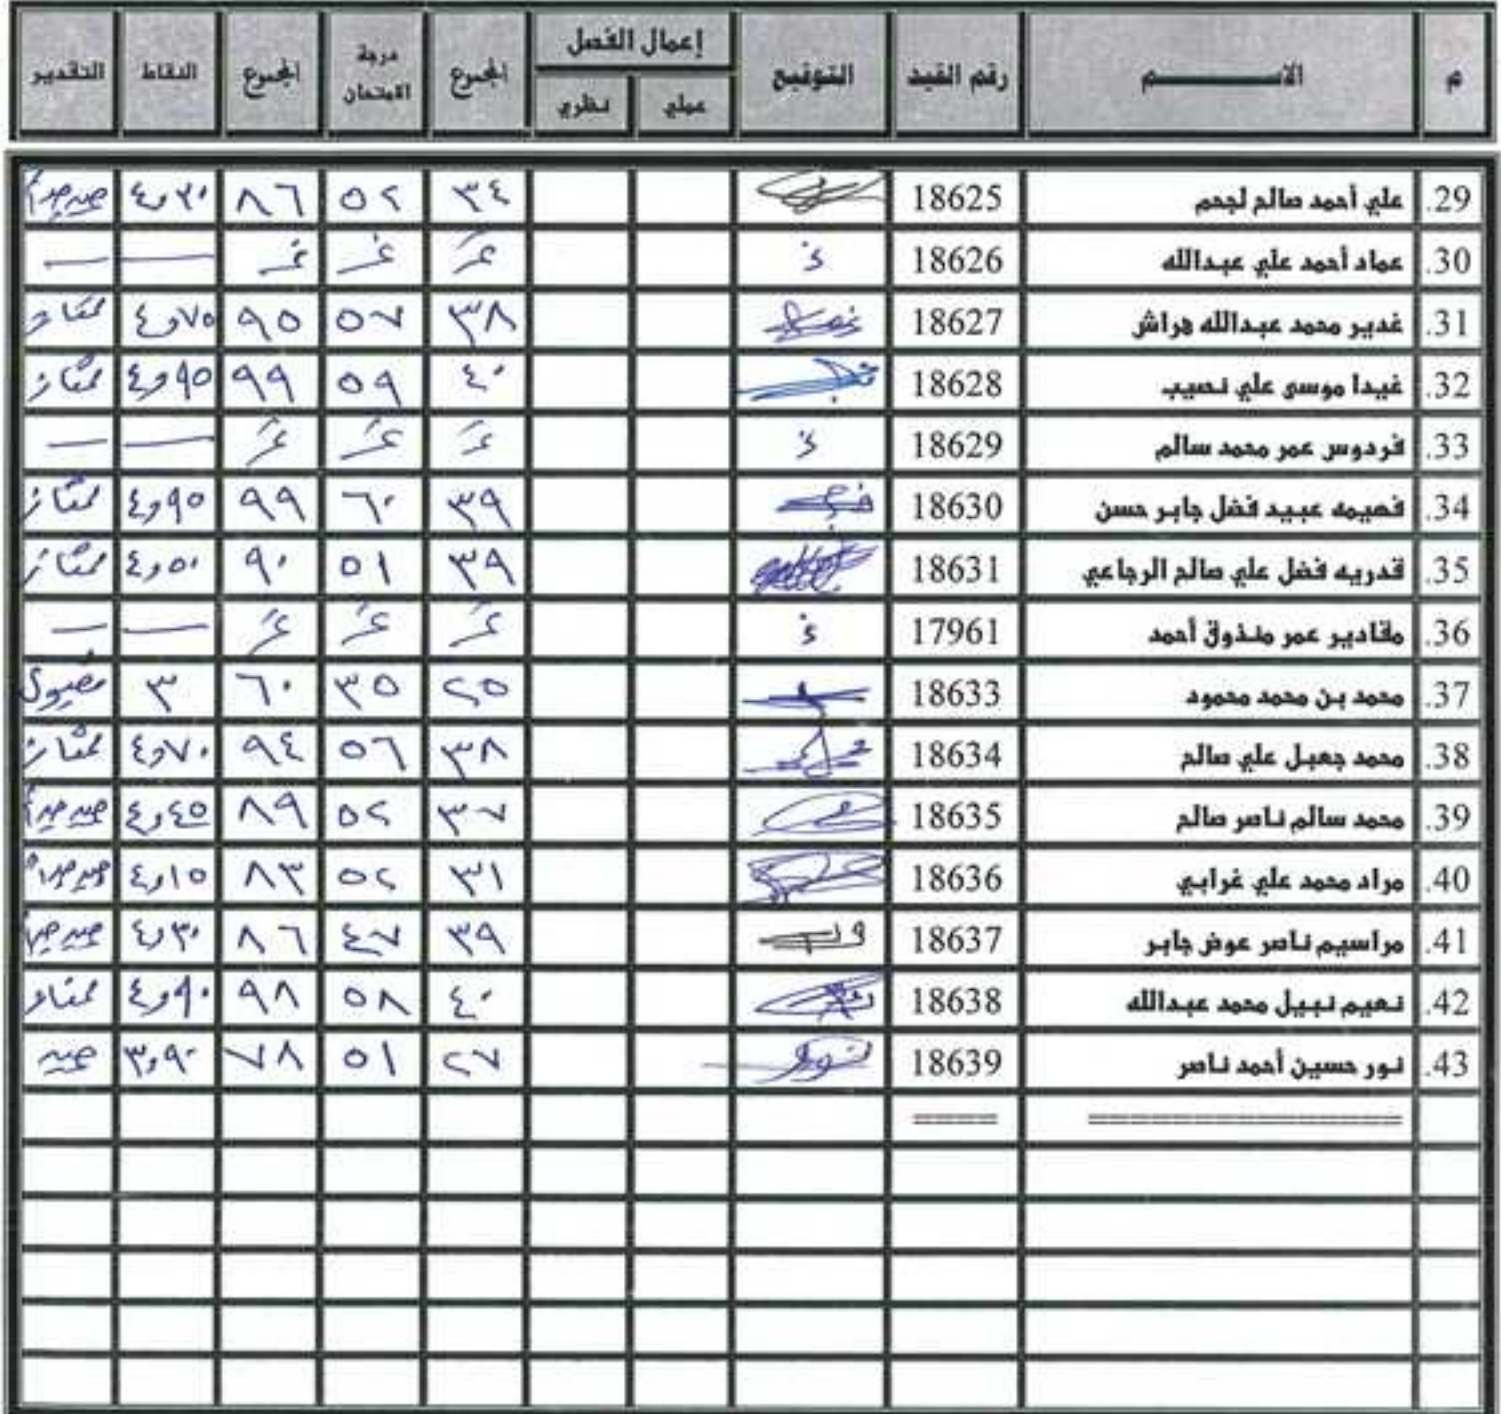 م الاســـــــم رقم القيد التوقيع إعمال الفصل المجموع درجة الامتحان المجموع النقاط التقدير
عملي نظري
29. علي أحمد صالح لجحم 18625 ٣٤ ٥٢ ٨٦ ٤٫٣٠ جيد جداً
30. عماد أحمد علي عبدالله 18626 غ غ غ غ — —
31. غدير محمد عبدالله هراش 18627 ٣٨ ٥٧ ٩٥ ٤٫٧٥ ممتاز
32. غيدا موسى علي نصيب 18628 ٤٠ ٥٩ ٩٩ ٤٫٩٥ ممتاز
33. فردوس عمر محمد سالم 18629 غ غ غ غ — —
34. فهيمه عبيد فضل جابر حسن 18630 ٣٩ ٦٠ ٩٩ ٤٫٩٥ ممتاز
35. قدريه فضل علي صالح الرجاعي 18631 ٣٩ ٥١ ٩٠ ٤٫٥٠ ممتاز
36. مقادير عمر منذوق أحمد 17961 غ غ غ غ — —
37. محمد بن محمد محمود 18633 ٢٥ ٣٥ ٦٠ ٣ مقبول
38. محمد جعبل علي صالح 18634 ٣٨ ٥٦ ٩٤ ٤٫٧٠ ممتاز
39. محمد سالم ناصر صالح 18635 ٣٧ ٥٢ ٨٩ ٤٫٤٥ جيد جداً
40. مراد محمد علي غرابي 18636 ٣١ ٥٢ ٨٣ ٤٫١٥ جيد جداً
41. مراسيم ناصر عوض جابر 18637 ٣٩ ٤٧ ٨٦ ٤٫٣٠ جيد جداً
42. نعيم نبيل محمد عبدالله 18638 ٤٠ ٥٨ ٩٨ ٤٫٩٠ ممتاز
43. نور حسين أحمد ناصر 18639 ٢٧ ٥١ ٧٨ ٣٫٩٠ جيد